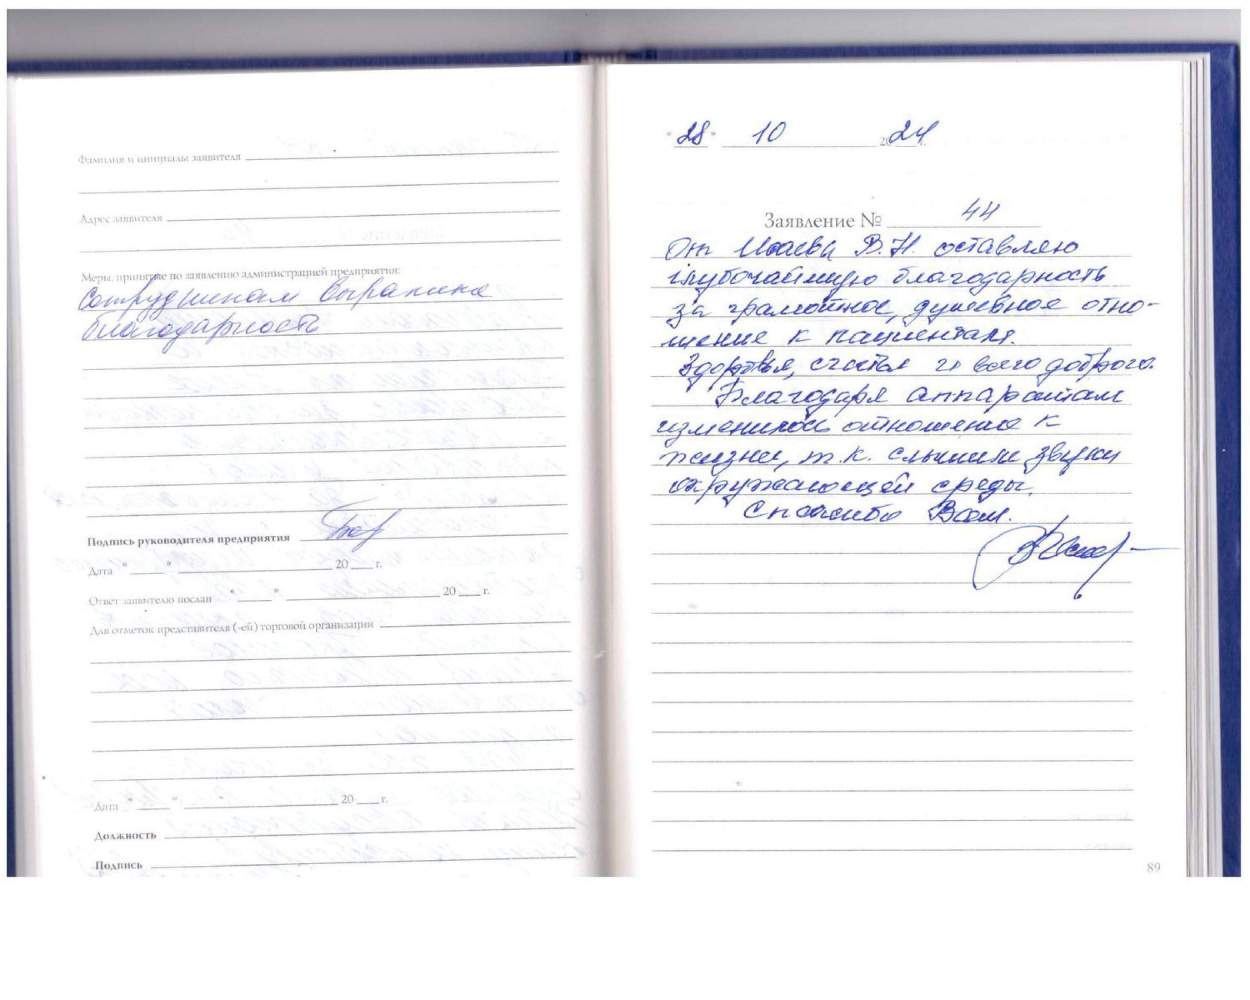 Фамилия и инициалы заявителя
Адрес заявителя
Меры, принятые по заявлению администрацией предприятия:
Сотрудникам выражена
благодарность
Подпись руководителя предприятия
Дата " " 20 г.
Ответ заявителю послан " " 20 г.
Для отметок представителя (-ей) торговой организации
Дата " " 20 г.
Должность
Подпись
"28" 10 2024 г.
Заявление № 44
От В.Н. оставляю
глубочайшую благодарность
за грамотное, душевное отно-
шение к пациентам.
Здоровья, счастья и всего доброго.
Благодаря аппаратам
изменилось отношение к
жизни, т.к. слышим звуки
окружающей среды.
Спасибо Вам.
89